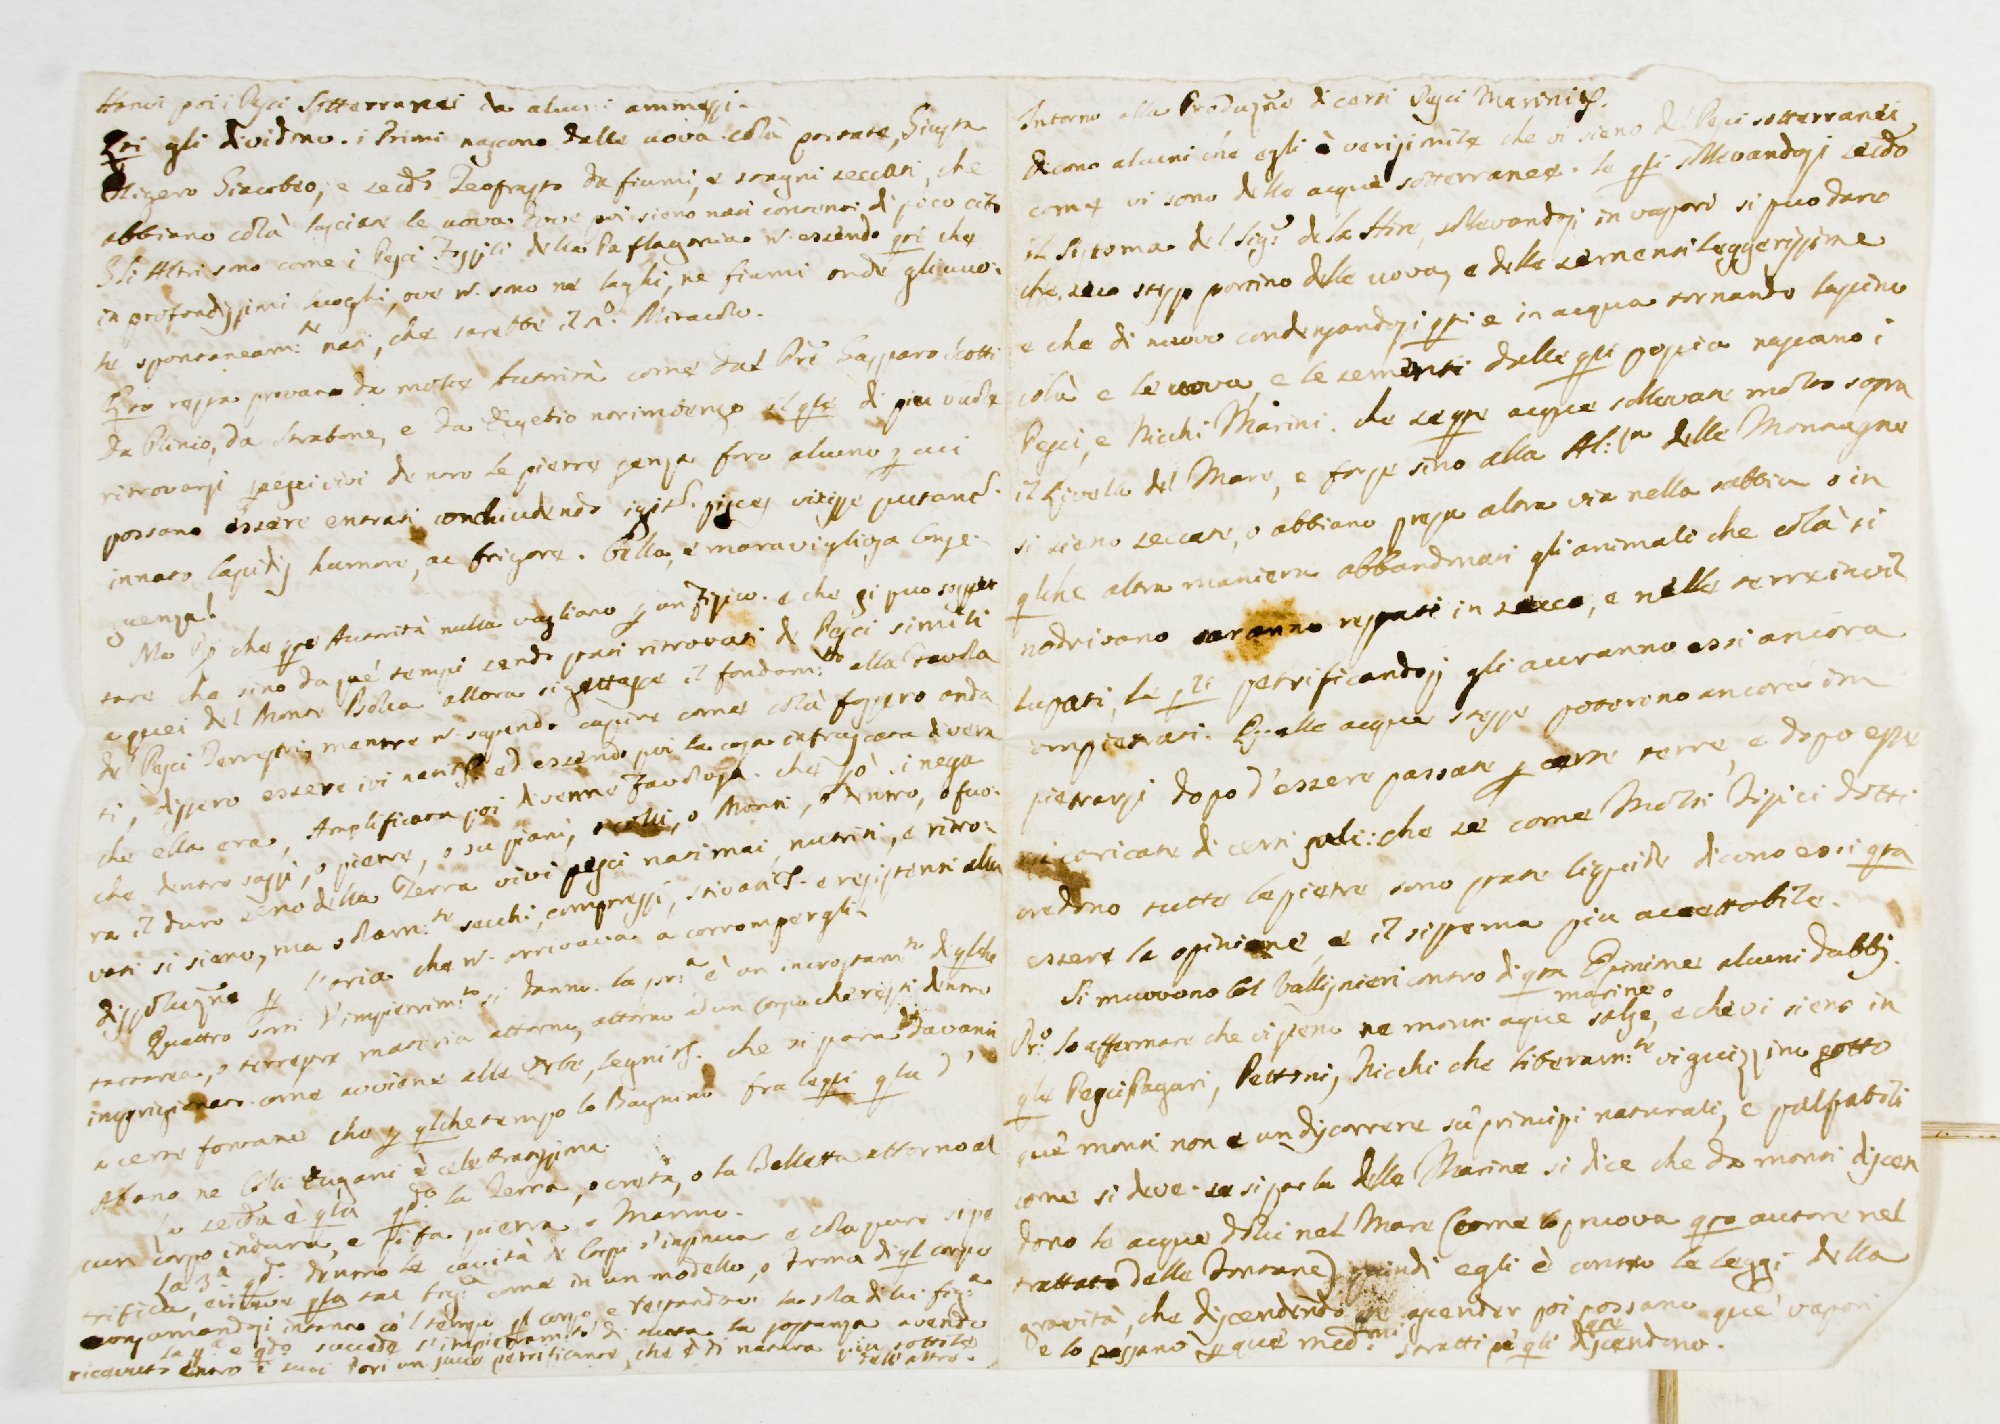 Hanvi poi i Pesci Sotterranei da alcuni ammessi.
Qsti gli dividono. i Primi nascono dalle uova colà portate, Giusta
Oligero Giacobeo, e secdo Teofrasto da fiumi, e stagni seccati, che
abbiano colà lasciate le uova. Dove poi sieno nati contenti di poco cibo
Gli Altri sono come i Pesci Fossili della Paflagonia n. essendo qsti che
in profondissimi luoghi, ove n. sono ne laghi, ne fiumi onde gli uvo:
te spontaneam:te nati, che sarebbe il Miracolo.
resta provato da molte Autorità come dal Pre Gasparo Scotti
da Plinio, da Strabone, e da Eusebio norimbergo di piu vuole
ritrovarsi pesci vivi dentro le pietre senza foro alcuno p cui
possano essere entrati conchiudendo pisces vixisse putant.
innato lapidis humore, ac frigore. Bella, e maravigliosa Conse-
guenza!
Ma che qste Autorità nulla vagliano p un Fisico. e che si puo sospet
tare che sino da que' tempi sendo stati ritrovati de Pesci simili
a quei del Monte Bolca allora si gettasse il fondam:to alla Favola
de' Pesci Terrestri, mentre n. sapendo capire come colà fossero anda
ti, dissero essere ivi nati ed essendo poi la cosa infrascata di vera
che ella era, Amplificata poi divenne Favolosa. che po' si nega
che dentro sassi, o pietre, o su piani, o colli, o Monti, o dentro, o fuo:
ra il duro seno della Terra vivi pesci nati mai, nutriti, e ritro:
vati si sieno, ma solam:te secchi, compressi, stivati. e resistenti alla
dissoluzne p l'aria che n. arrivava a corrompergli.
Quattro sorti d'impietrim:to si danno. la pria è un incrostam:to di qlche
tartarea, o terrestre materia attorno, attorno ad un Corpo che resti dentro
imprigionato. come avviene alle Erbe, legni. che si para davanti
a certe fontane che p qlche tempo lo Bagnino fra leqsti qla d'
Abano ne Colli Eugani è celebratissima.
La secda è qla qdo la Terra, o creta, o la Belletta attorno ad
cun corpo indura, e si fa pietra o Marmo.
La 3a qdo dentro le cavità de Corpi s'insinua e cola pure si pe
trifica, e riceve qsta tal figa come in un modello, o Forma di ql corpo
consumandosi intanto co'l tempo ql corpo, e restandovi la sola di lui fig:a
La 4a è qdo succede l'impietram:to di tutta la sostanza avendo
ricevuto entro i suoi Pori un succo petrificante, che è di natura piu sottile
dell'altro.
Intorno alla Produzne di certi Pesci Marini.
Dicono alcuni che egli è verisimile che vi sieno de' Pesci sotterranei,
come vi sono delle acque sotterranee. le qsti sollevandosi secdo
il sistema del Sigr de la Hire, sollevandosi in vapore si puo dare
che seco stesse portino delle uova, e delle sementi leggerissime
e che di nuovo condensandosi qsti e in acqua tornando lascino
colà e le uova, e le sementi dalle qsti poscia nascano i
Pesci, e Nicchi Marini. che se qste acque sollevate molto sopra
il Livello del Mare, e forse sino alla Al:za delle Montagne
si sieno seccate, o abbiano presa altra via nella sabbia o in
qlche altra maniera abbandonati gli animali che colà si
nodrivano saranno restati in secco, e nelle terre invi
lupati, le qli petrificandosi gli avranno essi ancora
impietrati. Qelle acque stesse poterono ancora im
pietrarsi dopo d'essere passate p certe terre, e dopo esse
si caricate di certi sali: che se come Molti Fisici dotti
credono tutte le pietre sono state liquide dicono essi qsta
essere la opinione, e il sistema piu accettabile.
Si muovono dal Vallisnieri contro di qsta Opinione alcuni dubbj.
Pr:o lo affermare che vi sieno ne monti aque salse, marine o e che vi sieno in
qle Pesci Pagari, Pettini, Nicchi che liberam:te vi guizzino sotto
que' monti non è un discorrere su' principi naturali, e palpabili
come si deve. se si parla delle Marine si dice che da monti discen
dono le acque dolci nel Mare (come lo pruova qsto autore nel
trattato delle Fontane) quindi egli è contro le leggi della
gravità, che discendendo ascender poi possano que' vapori
e lo possano p que' med:mi stratti pe' qli l'aqe discendono.